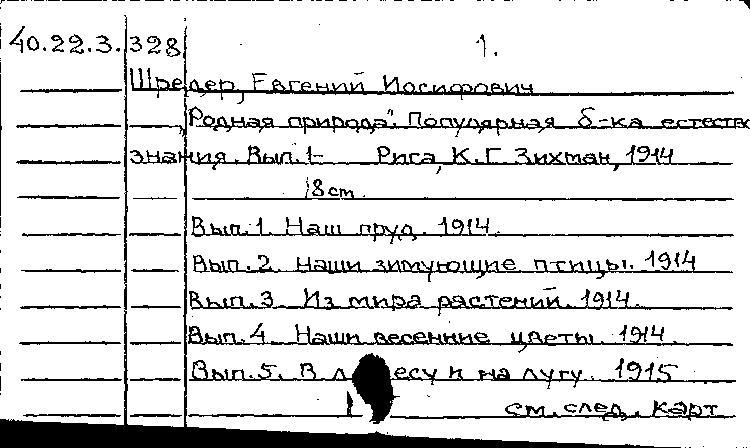 40.22.3. 328 1.
Шредер, Евгений Иосифович
„Родная природа". Популярная б-ка естеств
знания. Вып. 1- Рига, К.Г. Зихман, 1914
18 cm.
Вып. 1. Наш пруд. 1914.
Вып. 2. Наши зимующие птицы. 1914
Вып. 3. Из мира растений. 1914.
Вып. 4. Наши весенние цветы. 1914.
Вып. 5. В лесу и на лугу. 1915
см. след. карт